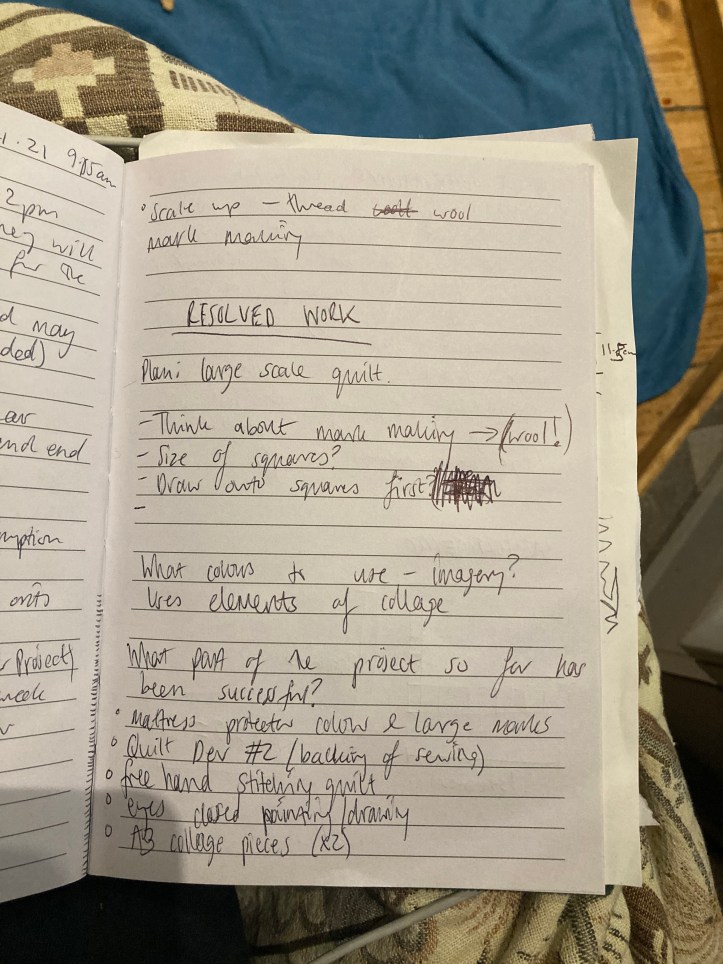 1.21 9:15am
2pm
they will
for the
d may
ded)
and end
mption
onto
Project)
week
• Scale up – thread wool
mark making
RESOLVED WORK
Plan: large scale quilt.
- Think about mark making → (wool!)
- Size of squares?
- Draw onto squares first?
-
What colours to use – imagery?
Uses elements of collage
What part of the project so far has
been successful?
• Mattress protector colour & large marks
• Quilt Dev #2 (backing of sewing)
• free hand stitching quilt
• eyes closed painting/drawing
• A3 collage pieces (x2)